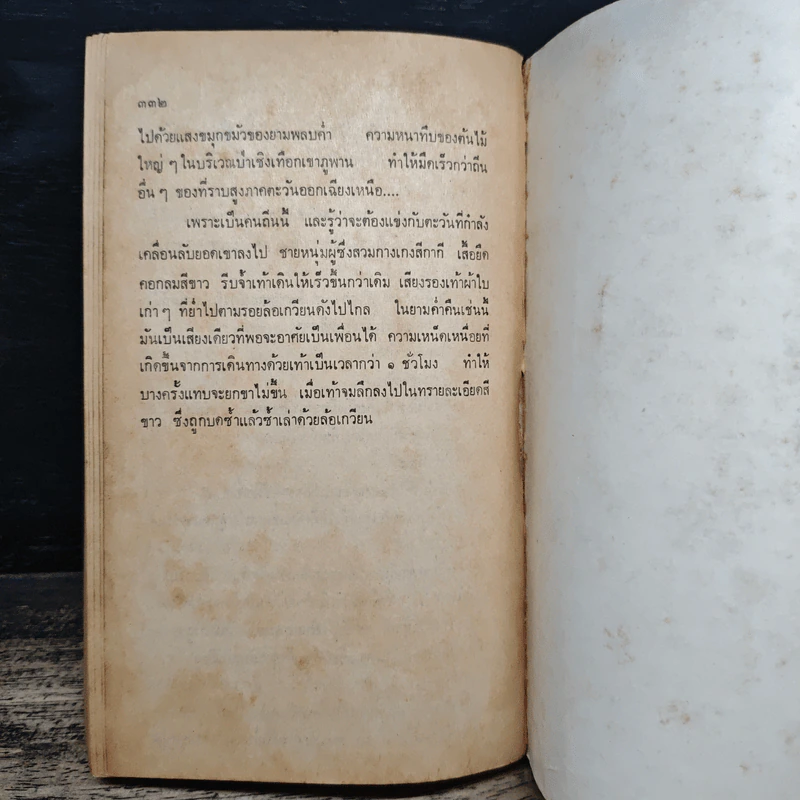 ๓๓๒
ไปด้วยแสงขมุกขมัวของยามพลบค่ำ ความหนาทึบของต้นไม้
ใหญ่ ๆ ในบริเวณป่าเชิงเทือกเขาภูพาน ทำให้มืดเร็วกว่าถิ่น
อื่น ๆ ของที่ราบสูงภาคตะวันออกเฉียงเหนือ....
เพราะเป็นคนถิ่นนี้ และรู้ว่าจะต้องแข่งกับตะวันที่กำลัง
เคลื่อนลับยอดเขาลงไป ชายหนุ่มผู้ซึ่งสวมกางเกงสีกากี เสื้อยืด
คอกลมสีขาว รีบจ้ำเท้าเดินให้เร็วขึ้นกว่าเดิม เสียงรองเท้าผ้าใบ
เก่า ๆ ที่ย่ำไปตามรอยล้อเกวียนดังไปไกล ในยามค่ำคืนเช่นนี้
มันเป็นเสียงเดียวที่พอจะอาศัยเป็นเพื่อนได้ ความเหน็ดเหนื่อยที่
เกิดขึ้นจากการเดินทางด้วยเท้าเป็นเวลากว่า ๑ ชั่วโมง ทำให้
บางครั้งแทบจะยกขาไม่ขึ้น เมื่อเท้าจมลึกลงไปในทรายละเอียดสี
ขาว ซึ่งถูกบดซ้ำแล้วซ้ำเล่าด้วยล้อเกวียน